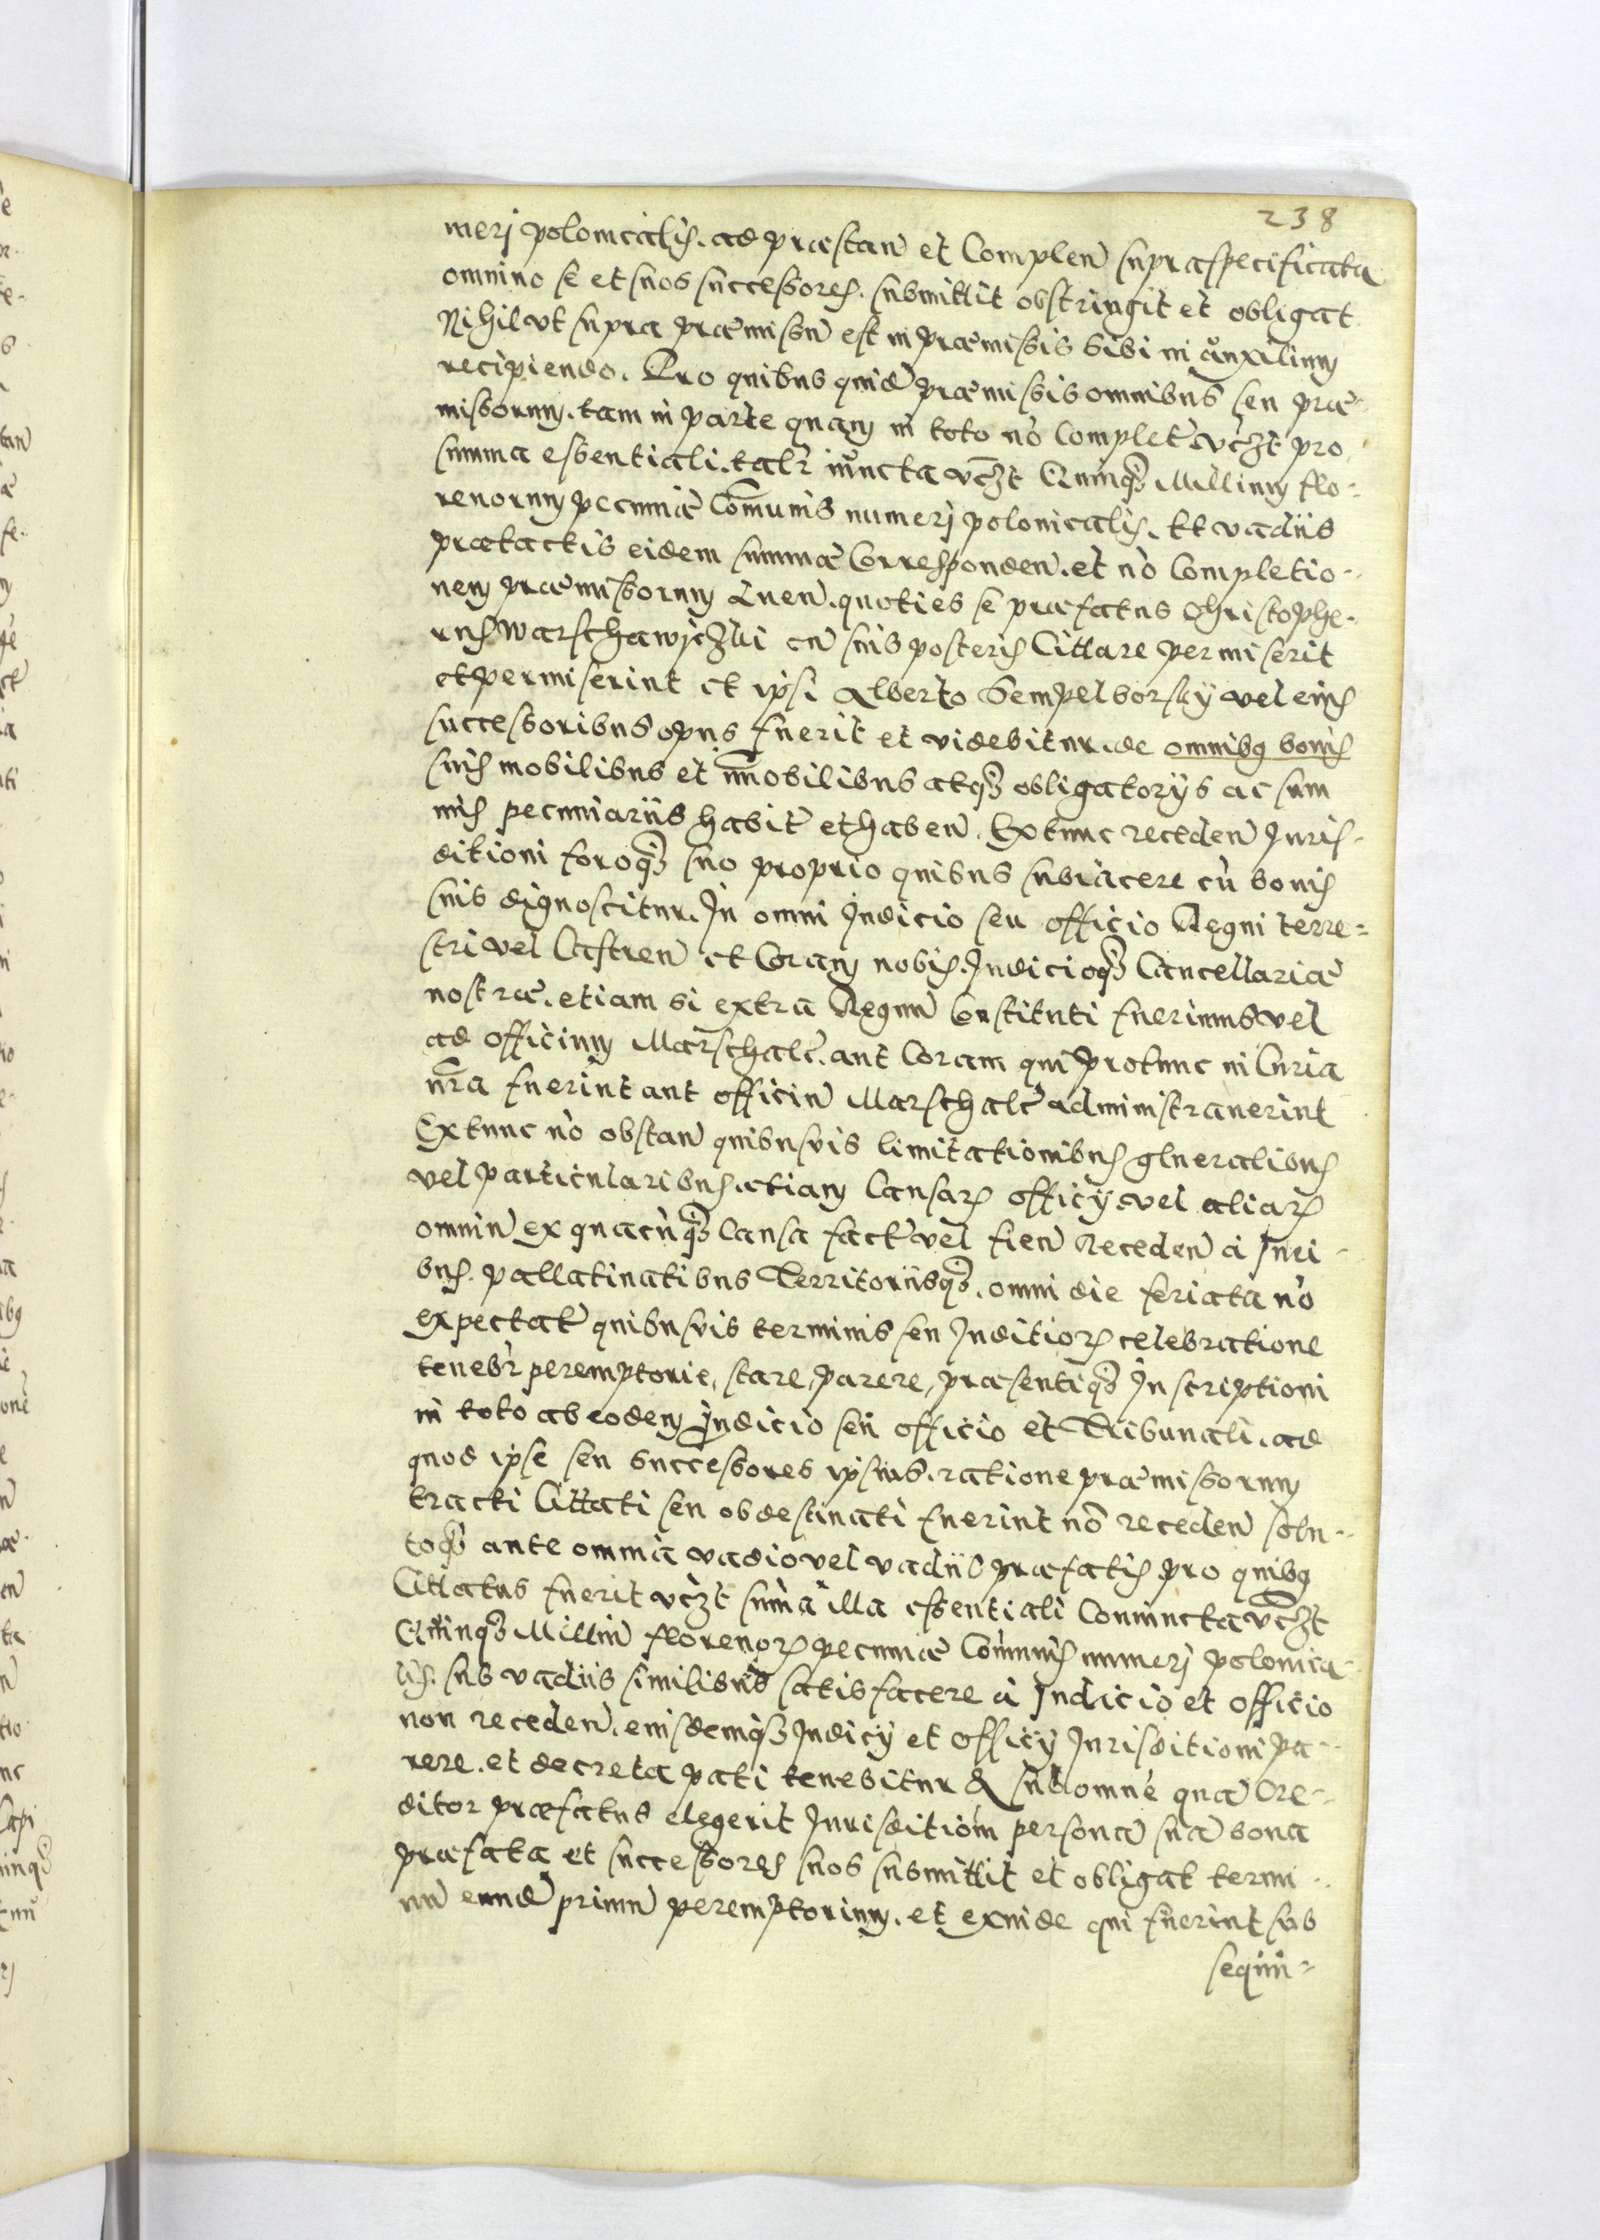 238
merj polonicalis. ad præstan̄ et Complen̄ supraspecificata
omnino se et suos successores. submittit obstringit et obligat
Nihil vt supra præmissū est in præmissis sibi in auxilium
recipiendo. Pro quibus quidē præmissis omnibus seu præ-
missorum. tam in parte quam in toto nō Complet̄ vczt pro
summa essentiali. talr̄ iuncta vczt Quinq3 Millium flo-
renorum pecuniæ Com̄unis numerj polonicalis. et vadiis
prætactis eidem summæ Corresponden̄. et nō Completio-
nem præmissorum Quen̄. quoties se præfatus Christophe-
rus Warschawiczki cū suis posteris Cittare permiserit
et permiserint et ipsi Alberto Sempelborsky vel eius
successoribus opus fuerit et videbitur. de omnibg bonis
suis mobilibus et im̄obilibus atq3 obligatorys ac sum
mis pecuniariis habit̄ et haben̄. Extunc receden̄ Juris-
ditioni foroq3 suo proprio quibus subiacere cū bonis
suis dignoscitur. In omni Judicio seu officio Regni terre-
stri vel Castren̄ et Coram nobis. Judicioq3 Cancellariæ
nostræ. etiam si extra Regnū Constituti fuerimus vel
ad officium Marschalc̄. aut Coram qui protunc in Curia
nr̄a fuerint aut officiū Marschalc̄ administrauerint
Extunc nō obstan̄ quibusvis limitationibus generalibus
vel particularibus. etiam Causar̄ officy vel aliar̄
omniū ex quacūq3 Causa fact̄ vel fien̄ Receden̄ à Juri-
bus. pallatinatibus Territoriisq3. omni die feriata nō
expectat̄ quibusvis terminis seu Juditior̄ celebratione
tenebr̄ peremptorie, stare, parere, præsentiq3 Inscriptioni
in toto ab eodem Judicio seu officio et Tribunali. ad
quod ipse seu successores ipsius. ratione præmissorum
tracti Cittati seu obdestinati fuerint nō receden̄ solu-
toq3 ante omnia vadio vel vadiis præfatis pro quibg
Cittatus fuerit vczt sum̄a illa essentiali Coniuncta vczt
Quinq3 Milliū florenor̄ pecuniæ Com̄unis numerj polonica
lis. sub vadiis similibus satisfacere à Judicio et officio
non receden̄. eiusdemq3 Judicy et officy Jurisditioni pa-
rere. et decreta pati tenebitur & sub omnē quā Cre-
ditor præfatus elegerit Jurisditiōm personā suā bona
præfata et successores suos submittit et obligat termi-
nū eundē primū peremptorium. et exinde qui fuerint sub
sequū-